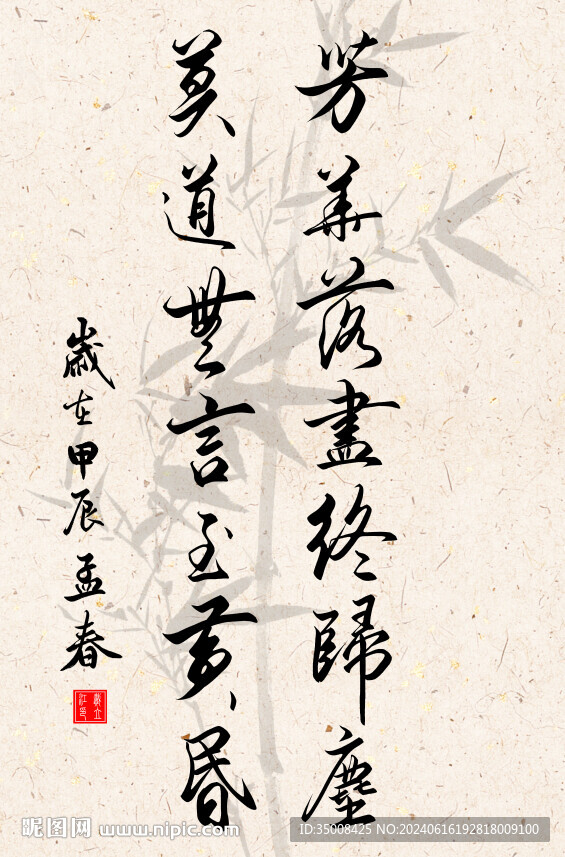 芳華落盡終歸塵
莫道無言至黃昏
歲在甲辰孟春
昵图网 www.nipic.com
ID:35008425 NO:20240616192818009100